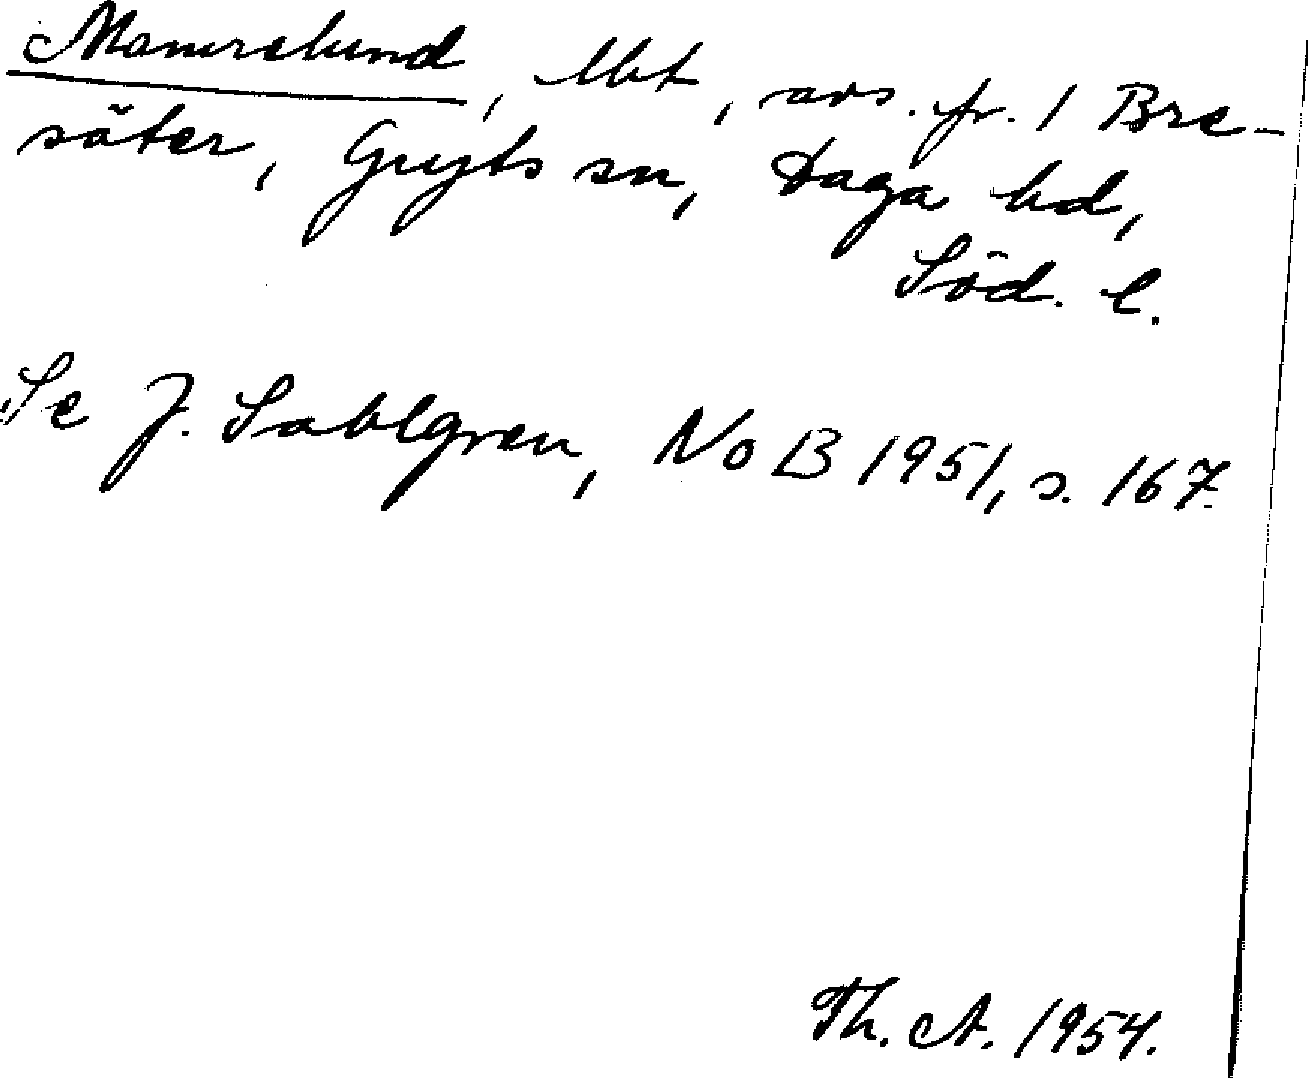 Mamrelund, lht, avs. fr. 1 Bre-
säter, Gryts sn, Daga hd,
Söd. l.
Se J. Sahlgren, NoB 1951, s. 167.
Th. A. 1954.